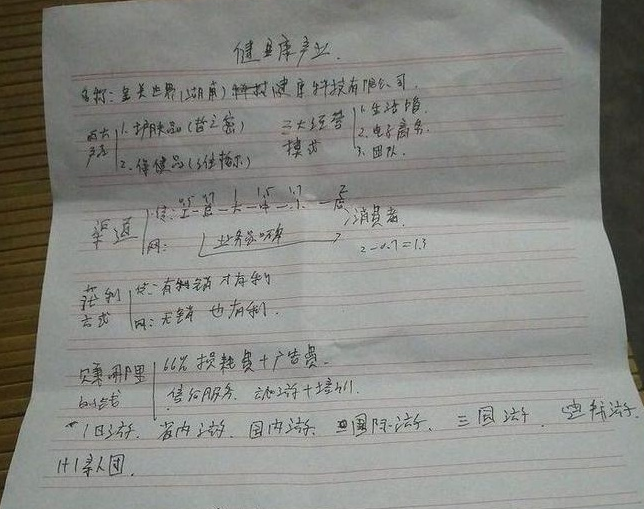 健康产业.
名称:全美世界(湖南)健康科技有限公司.
两大产品 1.护肤品(哲之密) 三大经营模式 1.生活馆.
2.电子商务.
2.保健品( 3.团队.
渠道 传: 0.5 0.7 1 1.5 1.7 2
消费者.
网: 业务员 2-0.7=1.3
获利方式 传:有利销才有利
网:无销也有利.
赚哪里的钱 66% 损耗费+广告费.
售后服务 旅游+培训.
1日游. 省内游. 国内游. 国际游. 三国游.
1+1亲人团.